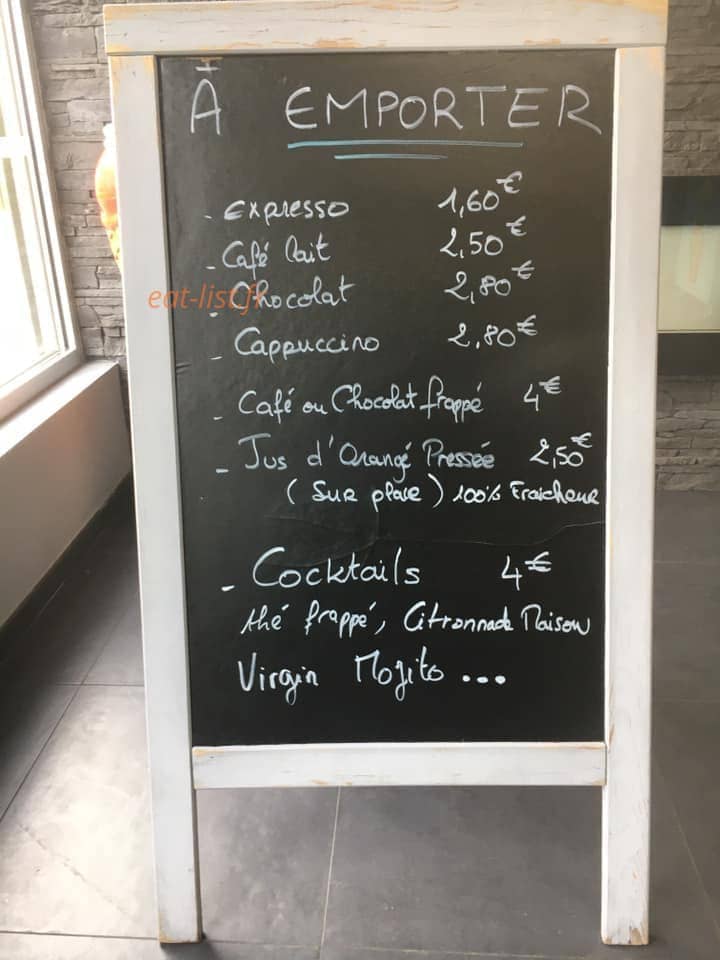 À EMPORTER
- expresso 1,60€
- Café lait 2,50€
eat-list.fr
- Chocolat 2,80€
- Cappuccino 2,80€
- Café ou Chocolat frappé 4€
- Jus d'Orangé Pressée 2,50€
(Sur place) 100% Fraicheur
- Cocktails 4€
thé frappé, Citronnade Maison
Virgin Mojito ...